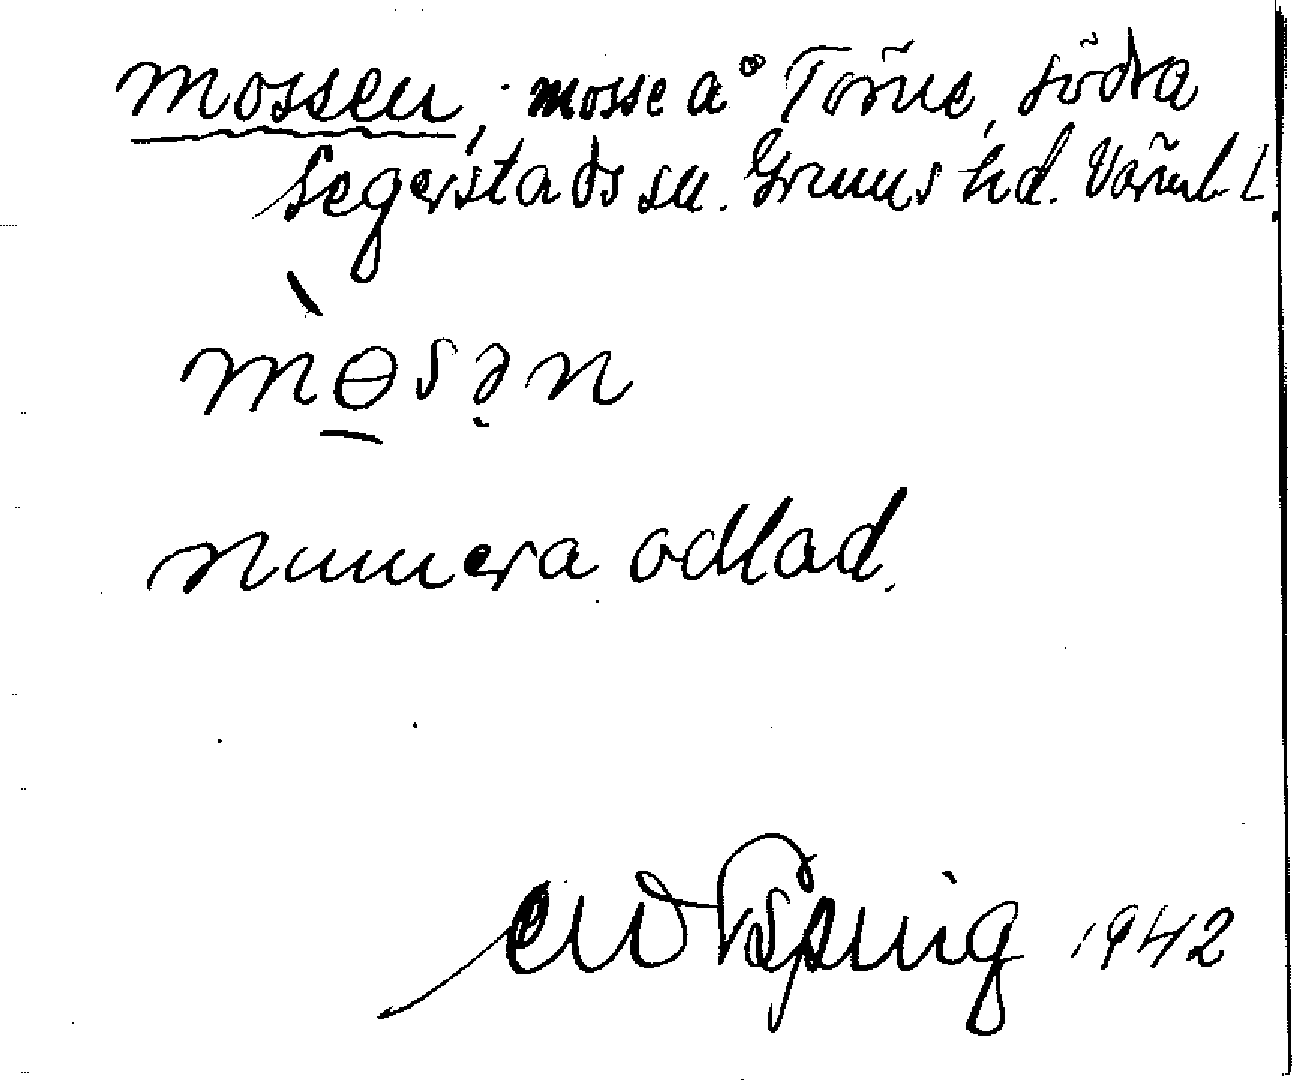 Mossen, mosse å Törne, södra
Segerstads sn. Grums hd. Värml. L.
mɵsən
numera odlad.
1942